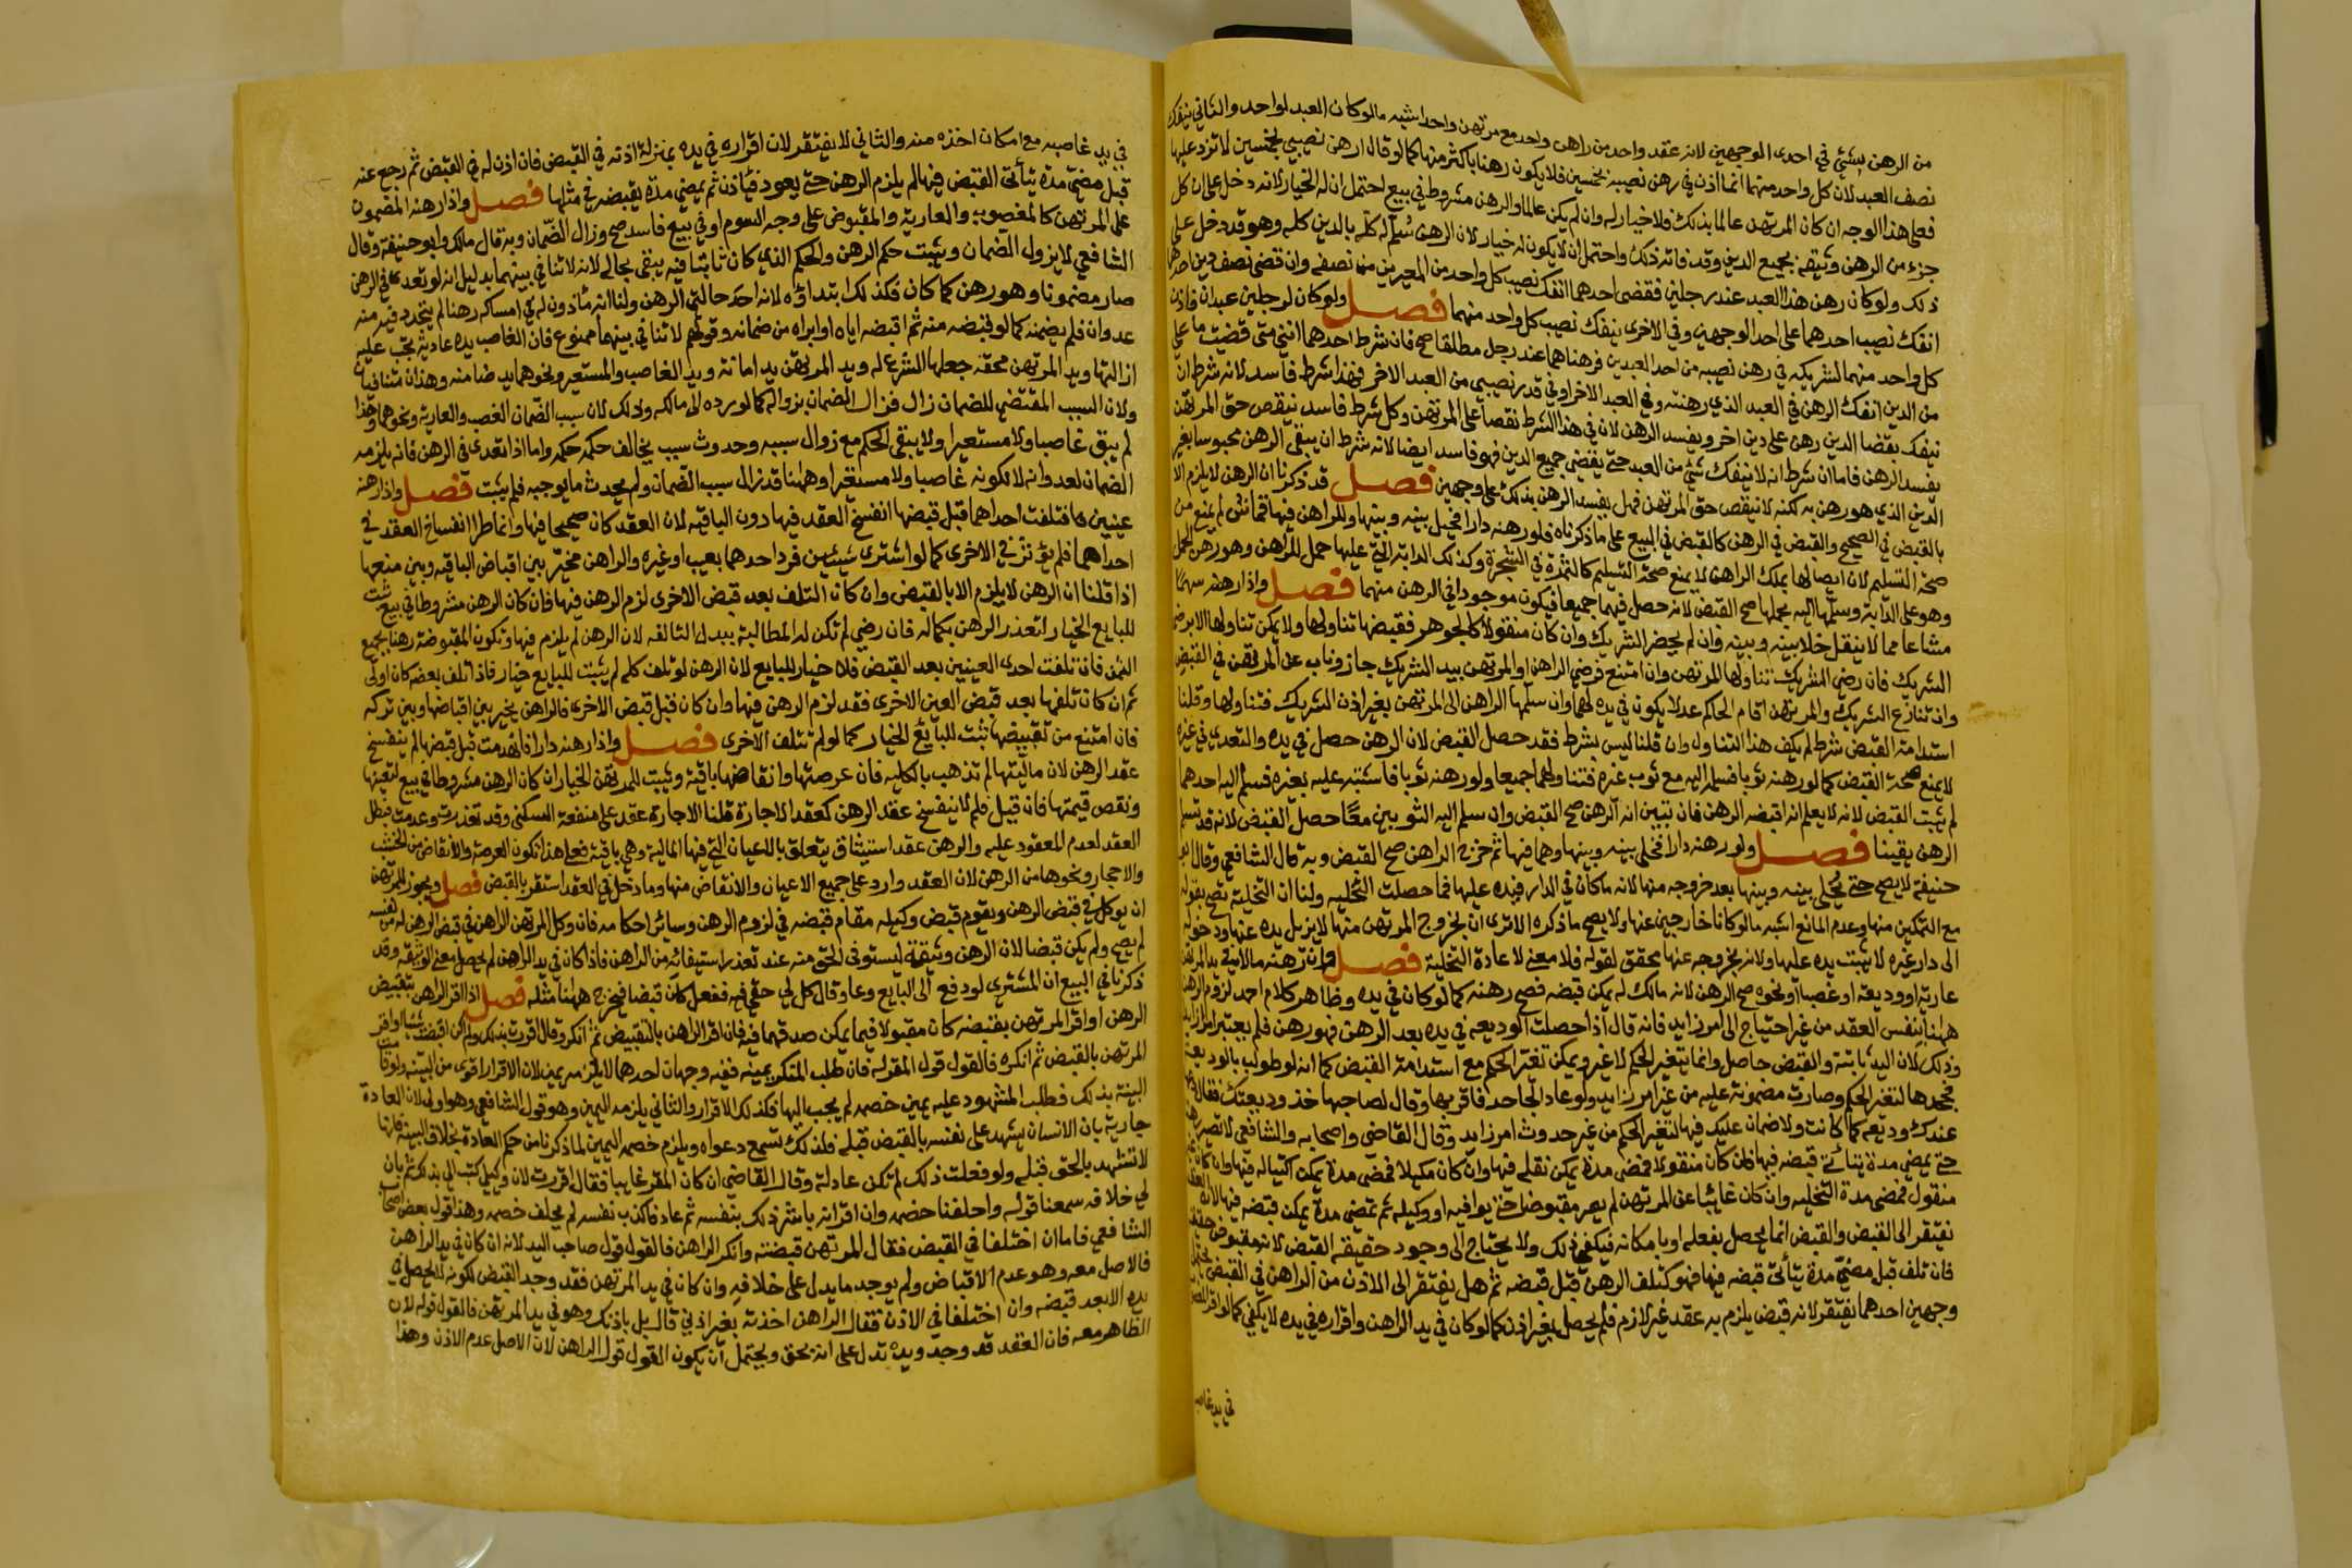 من الرهن بشئي في احدى الوجهين لانه عقد واحد من راهن واحد مع مرتهن واحد اشبه مالوكان العبد لواحد والثاني ينفك
نصف العبد لان كل واحد منهما انما اذن في رهن نصيبه بخمسين فلا يكون رهنا باكثر منها كما لو قال ارهن نصيبي بخمسين لا تزد عليها
فعلى هذا الوجه ان كان المرتهن عالما بذلك فلا خيار له وان لم يكن عالما والرهن مشروط في بيع احتمل ان له الخيار لانه دخل على ان كل
جزء من الرهن وثيقة بجميع الدين وقد فاته ذلك واحتمل ان لا يكون له خيار لان الرهن سلم له كله بالدين كله وهو قد دخل على
ذلك ولو كان رهن هذا العبد عند رجلين فقضى احدهما انفك نصيب كل واحد من المعيرين من نصفه وان قضى نصف دين احدهما
انفك نصيب احدهما على احد الوجهين وفي الاخرى ينفك نصيب كل واحد منهما فصل ولو كان لرجلين عبدان فاذن
كل واحد منهما لشريكه في رهن نصيبه من احد العبدين فرهناهما عند رجل مطلقا صح فان شرط احدهما انني متى قضيت ما علي
من الدين انفك الرهن في العبد الذي رهنته وفي العبد الاخر او في قدر نصيبي من العبد الاخر فهذا شرط فاسد لانه شرط ان
ينفك بقضا الدين رهن على دين اخر ويفسد الرهن لان في هذا الشرط نقصا على المرتهن وكل شرط فاسد ينقص حق المرتهن
يفسد الرهن فاما ان شرط انه لا ينفك شئ من العبد حتى يقضي جميع الدين فهو فاسد ايضا لانه شرط ان يبقى الرهن محبوسا بغير
الدين الذي هو رهن به لكنه لا ينقص حق المرتهن فهل يفسد الرهن بذلك على وجهين فصل قد ذكرنا ان الرهن لا يلزم الا
بالقبض في الصحيح والقبض في الرهن كالقبض في البيع على ما ذكرناه فلو رهنه دارا فخلى بينه وبينها وللراهن فيها قماش لم يمنع من
صحة التسليم لان ايصالها بملك الراهن لا يمنع صحة التسليم كالثمرة في الشجرة وكذلك الدابة التي عليها حمل للراهن وهو رهن الحمل
وهو على الدابة وسلمها اليه بحملها صح القبض لانه حصل فيهما جميعا فيكون موجودا في الرهن منهما فصل واذا رهنه سهما
مشاعا مما لا ينقل خلا بينه وبينه وان لم يحضر الشريك وان كان منقولا كالجوهر فقبضها تناولها ولا يمكن تناولها الا برضى
الشريك فان رضي الشريك تناولها المرتهن وان امتنع فرضي الراهن او المرتهن بيد الشريك جاز وناب عن المرتهن في القبض
وان تنازع الشريك والمرتهن اقام الحاكم عدلا يكون في يده لهما وان سلمها الراهن الى المرتهن بغير اذن الشريك فتناولها وقلنا
استدامة القبض شرط لم يكف هذا التناول وان قلنا ليس بشرط فقد حصل القبض لان الرهن حصل في يده والتعدي في غيره
لا يمنع صحة القبض كما لو رهنه ثوبا فسلمه اليه مع ثوب غيره فتناولهما جميعا ولو رهنه ثوبا فاشتبه عليه بغيره فسلم اليه احدهما
لم يثبت القبض لانه لا يعلم انه اقبضه الرهن فان تبين انه الرهن صح القبض وان سلم اليه الثوبين معا حصل القبض لانه قد تسلم
الرهن يقينا فصل ولو رهنه دارا فخلى بينه وبينها وهما فيها ثم خرج الراهن صح القبض وبه قال الشافعي وقال ابو
حنيفة لا يصح حتى يخلي بينه وبينها بعد خروجه منها لانه ما كان في الدار فيده عليها فما حصلت التخلية ولنا ان التخلية تصح بقوله
مع التمكين منها وعدم المانع اشبه مالو كانا خارجين عنها ولا يصح ما ذكره الا ترى ان بخروج المرتهن منها لا يزيل يده عنها ودخوله
الى دار غيره لا يثبت يده عليها ولانه بخروجه عنها محقق لقوله فلا معنى لاعادة التخلية فصل وان رهنه مالا في يد المرتهن
عارية او وديعة او غصبا او نحوه صح الرهن لانه مالك له يمكن قبضه فصح رهنه كما لو كان في يده وظاهر كلام احمد لزوم الرهن
ههنا بنفس العقد من غير احتياج الى امر زايد فانه قال اذا حصلت الوديعة في يده بعد الرهن فهو رهن فلم يعتبر امرا زايدا
وذلك لان اليد ثابتة والقبض حاصل وانما يتغير الحكم لا غير ويمكن تغير الحكم مع استدامة القبض كما انه لو طولب بالوديعة
فجحدها لتغير الحكم وصارت مضمونة عليه من غير امر زايد ولو عاد الجاحد فاقر بها وقال لصاحبها خذ وديعتك فقال دعها
عندك وديعة كما كانت ولا ضمان عليك فيها لتغير الحكم من غير حدوث امر زايد وقال القاضي واصحابه والشافعي لا تصير رهنا
حتى يمضي مدة يتأتى قبضه فيها فان كان منقولا فمضى مدة يمكن نقله فيها وان كان مكيلا فمضى مدة يمكن اكتياله فيها وان كان غير
منقول فمضى مدة التخلية وان كان غايبا عن المرتهن لم يصر مقبوضا حتى يوافيه او وكيله ثم تمضي مدة يمكن قبضه فيها لان العقد
يفتقر الى القبض والقبض انما يحصل بفعله او بامكانه فيكفي ذلك ولا يحتاج الى وجود حقيقة القبض لانه مقبوض حقيقة
فان تلف قبل مضي مدة يتأتى قبضه فيها فهو كتلف الرهن قبل قبضه ثم هل يفتقر الى الاذن من الراهن في القبض يحتمل
وجهين احدهما يفتقر لانه قبض يلزم به عقد غير لازم فلم يحصل بغير اذن كما لو كان في يد الراهن واقراره في يده لا يكفي كما لو اقر المغصوب
في يد غاصبه
في يد غاصبه مع امكان اخذه منه والثاني لا يفتقر لان اقراره في يده بمنزلة اذنه في القبض فان اذن له في القبض ثم رجع عنه
قبل مضي مدة يتأتى القبض فيها لم يلزم الرهن حتى يعود فيأذن ثم يمضي مدة يقبضه في مثلها فصل واذا رهنه المضمون
على المرتهن كالمغصوب والعارية والمقبوض على وجه السوم او في بيع فاسد صح وزال الضمان وبه قال مالك وابو حنيفة وقال
الشافعي لا يزول الضمان ويثبت حكم الرهن والحكم الذي كان ثابتا فيه يبقى بحاله لانه لا تنافي بينهما بدليل انه لو تعدى في الرهن
صار مضمونا وهو رهن كما كان فكذلك ابتداؤه لانه احد حالتي الرهن ولنا انه مأذون له في امساكه رهنا لم يتجدد فيه منه
عدوان فلم يضمنه كما لو قبضه منه ثم اقبضه اياه او ابراه من ضمانه وقولهم لا تنافي بينهما ممنوع فان الغاصب يده عادية يجب عليه
ازالتها ويد المرتهن محقة جعلها الشرع له ويد المرتهن يد امانة ويد الغاصب والمستعير ونحوهما يد ضامنه وهذان متنافيان
ولان السبب المقتضي للضمان زال فزال الضمان بزواله كما لو رده الى مالكه وذلك لان سبب الضمان الغصب والعارية ونحوهما وهذا
لم يبق غاصبا ولا مستعيرا ولا يبقى الحكم مع زوال سببه وحدوث سبب يخالف حكمه حكمه واما اذا تعدى في الرهن فانه يلزمه
الضمان لعدوانه لا لكونه غاصبا ولا مستعيرا وههنا قد زال سبب الضمان ولم يحدث ما يوجبه فلم يثبت فصل واذا رهنه
عينين فتلفت احداهما قبل قبضها انفسخ العقد فيها دون الباقية لان العقد كان صحيحا فيها وانما طرا انفساخ العقد في
احداهما فلم يؤثر في الاخرى كما لو اشترى شيئين فرد احدهما بعيب او غيره والراهن مخير بين اقباض الباقية وبين منعها
اذا قلنا ان الرهن لا يلزم الا بالقبض وان كان التلف بعد قبض الاخرى لزم الرهن فيها فان كان الرهن مشروطا في بيع ثبت
للبايع الخيار لتعذر الرهن بكماله فان رضي لم تكن له المطالبة ببدل التالفه لان الرهن لم يلزم فيها وتكون المقبوضة رهنا بجميع
الثمن فان تلفت احدى العينين بعد القبض فلا خيار للبايع لان الرهن لو تلف كله لم يثبت للبايع خيار فاذا تلف بعضه كان اولى
ثم ان كان تلفها بعد قبض العين الاخرى فقد لزم الرهن فيها وان كان قبل قبض الاخرى فالراهن يخير بين اقباضها وبين تركه
فان امتنع من تقبيضها ثبت للبايع الخيار كما لو لم تتلف الاخرى فصل واذا رهنه دارا فانهدمت قبل قبضها لم ينفسخ
عقد الرهن لان ماليتها لم تذهب بالكليه فان عرصتها وانقاضها باقية ويثبت للمرتهن الخيار ان كان الرهن مشروطا في بيع لتعيبها
ونقص قيمتها فان قيل فلم لا ينفسخ عقد الرهن كعقد الاجارة قلنا الاجارة عقد على منفعة السكنى وقد تعذرت وعدمت فبطل
العقد لعدم المعقود عليه والرهن عقد استيثاق يتعلق بالاعيان التي فيها المالية وهي باقية فعلى هذا تكون العرصة والانقاض من الخشب
والاحجار ونحوها من الرهن لان العقد وارد على جميع الاعيان والانقاض منها وما دخل في العقد استقر بالقبض فصل ويجوز للمرتهن
ان يوكل في قبض الرهن ويقوم قبض وكيله مقام قبضه في لزوم الرهن وساير احكامه فان وكل المرتهن الراهن في قبض الرهن له من نفسه
لم يصح ولم يكن قبضا لان الرهن وثيقة ليستوفى الحق منه عند تعذر استيفائه من الراهن فاذا كان في يد الراهن لم يحصل معنى الوثيقة وقد
ذكرنا في البيع ان المشتري لو دفع الى البايع وعا وقال كل لي حقي فيه ففعل كان قبضا فيخرج ههنا مثله فصل اذا اقر الراهن بتقبيض
الرهن او اقر المرتهن بقبضه كان مقبولا فيما يمكن صدقهما فيه فان اقر الراهن بالتقبيض ثم انكر وقال اقررت بذلك ولم اكن اقبضت شيئا او اقر
المرتهن بالقبض ثم انكره فالقول قول المقر له فان طلب المنكر يمينه ففيه وجهان احدهما لا يلزمه يمين لان الاقرار اقوى من البينه ولو قامت
البينة بذلك فطلب المشهود عليه يمين خصمه لم يجب اليها فكذلك الاقرار والثاني يلزمه اليمين وهو قول الشافعي وهو اولى لان العادة
جارية بان الانسان يشهد على نفسه بالقبض قبله فلذلك تسمع دعواه ويلزم خصمه اليمين لما ذكرنا من حكم العادة بخلاف البينة فانها
لا تشهد بالحق قبله ولو فعلت ذلك لم تكن عادلة وقال القاضي ان كان المقر غايبا فقال اقررت لان وكيلي كتب الي بذلك ثم بان
لي خلافه سمعنا قوله واحلفنا خصمه وان اقر انه باشر ذلك بنفسه ثم عاد فاكذب نفسه لم يحلف خصمه وهذا قول بعض اصحاب
الشافعي فاما ان اختلفا في القبض فقال المرتهن قبضته وانكر الراهن فالقول قول صاحب اليد لانه ان كان في يد الراهن
فالاصل معه وهو عدم الاقباض ولم يوجد ما يدل على خلافه وان كان في يد المرتهن فقد وجد القبض لكونه لا يحصل في
يده الا بعد قبضه وان اختلفا في الاذن فقال الراهن اخذته بغير اذني قال بل باذنك وهو في يد المرتهن فالقول قوله لان
الظاهر معه فان العقد قد وجد ويده تدل على انه بحق ويحتمل ان يكون القول قول الراهن لان الاصل عدم الاذن وهذا